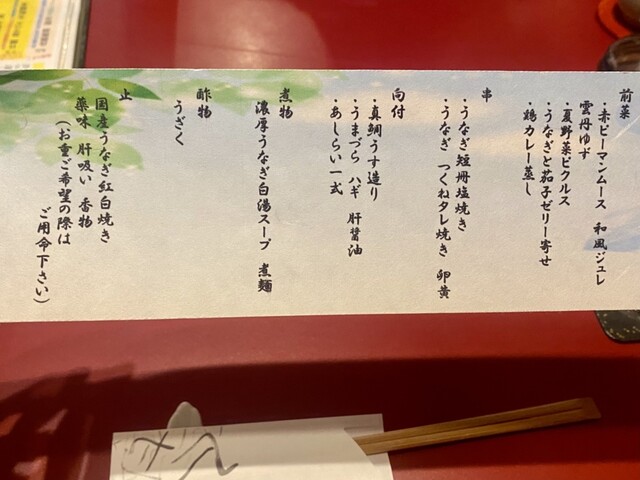 前菜
・赤ピーマンムース 和風ジュレ
雲丹ゆず
・夏野菜ピクルス
・うなぎと茄子ゼリー寄せ
・鶏カレー蒸し
串
・うなぎ短冊塩焼き
・うなぎ つくねタレ焼き 卵黄
向付
・真鯛うす造り
・うまづら ハギ 肝醤油
・あしらい一式
煮物
濃厚うなぎ白湯スープ 煮麺
酢物
うざく
止
国産うなぎ紅白焼き
薬味 肝吸い 香物
(お重ご希望の際は
ご用命下さい)